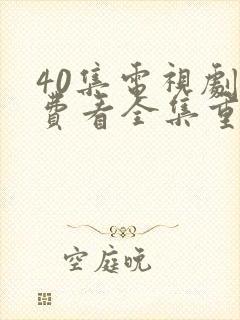 40集電視劇
費看全集重
空庭晚